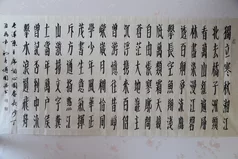 獨立寒秋湘江
北去橘子洲頭
看萬山紅遍層
林盡染漫江碧
透百舸爭流鷹
擊長空魚翔淺
底萬類霜天競
自由悵寥廓問
蒼茫大地誰主
沉浮攜來百侶
曾遊憶往昔崢
嶸歲月稠恰同
學少年風華正
茂書生意氣揮
斥方遒指點江
山激揚文字糞
土當年萬戶侯
曾記否到中流
擊水浪遏飛舟